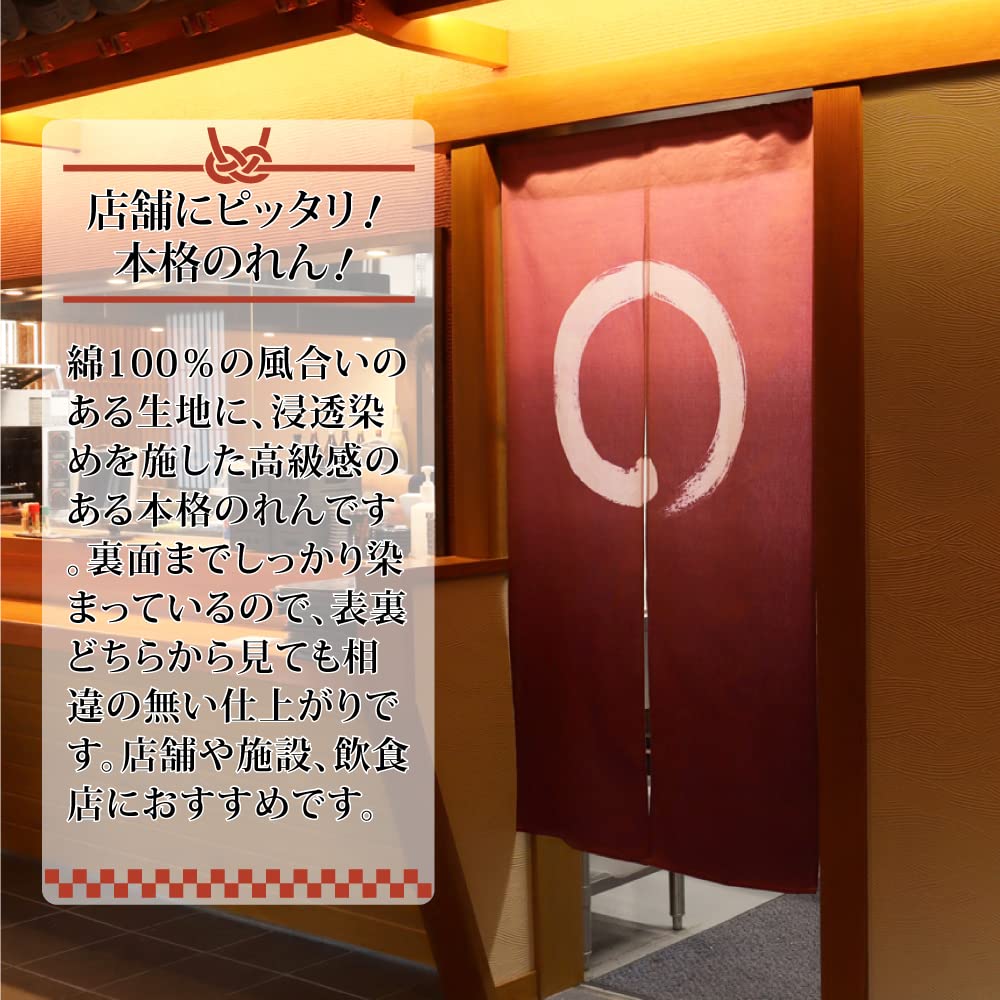 店舗にピッタリ!
本格のれん!
綿100％の風合いの
ある生地に、浸透染
めを施した高級感の
ある本格のれんです
。裏面までしっかり染
まっているので、表裏
どちらから見ても相
違の無い仕上がりで
す。店舗や施設、飲食
店におすすめです。